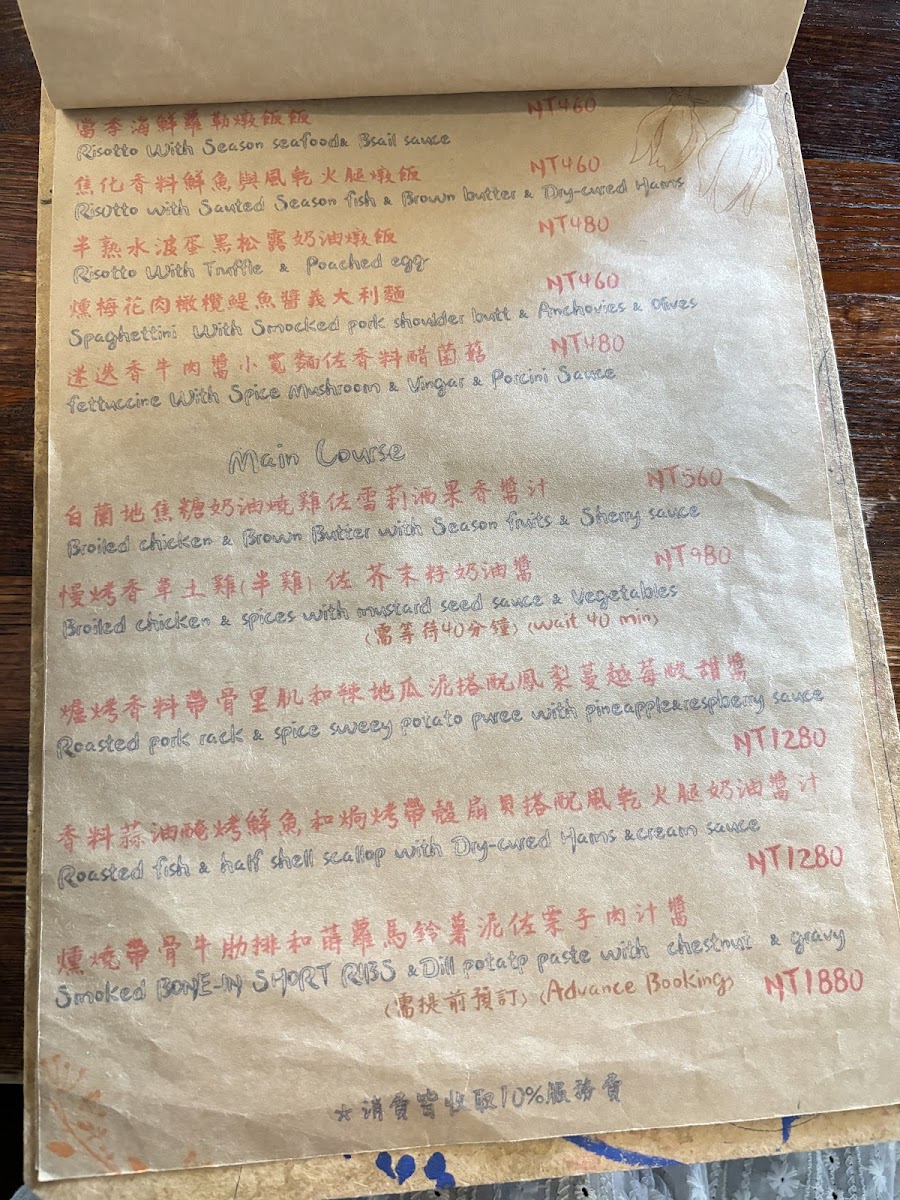 當季海鮮蘿勒燉飯飯 NT460
Risotto With Season seafood& Bsail sauce
焦化香料鮮魚與風乾火腿燉飯 NT460
Risotto with Sauted Season fish & Brown butter & Dry-cured Hams
半熟水波蛋黑松露奶油燉飯 NT480
Risotto With Truffle & Poached egg
燻梅花肉橄欖鯷魚醬義大利麵 NT460
Spaghettini With Smocked pork shoulder butt & Anchovies & Olives
迷迭香牛肉醬小寬麵佐香料醋菌菇 NT480
fettuccine With Spice Mushroom & Vingar & Porcini Sauce
Main Course
白蘭地焦糖奶油燒雞佐雪莉酒果香醬汁 NT560
Broiled chicken & Brown Butter with Season fruits & Sherry sauce
慢烤香草土雞(半雞) 佐芥末籽奶油醬 NT980
Broiled chicken & spices with mustard seed sauce & Vegetables
(需等待40分鐘) (wait 40 min)
爐烤香料帶骨里肌和辣地瓜泥搭配鳳梨蔓越莓酸甜醬
Roasted pork rack & spice sweey potato puree with pineapple&respberry sauce
NT1280
香料蒜油醃烤鮮魚和焗烤帶殼扇貝搭配風乾火腿奶油醬汁
Roasted fish & half shell scallop with Dry-cured Hams &cream sauce
NT1280
燻燒帶骨牛肋排和蒔蘿馬鈴薯泥佐栗子肉汁醬
Smoked BONE-IN SHORT RIBS & Dill potatp paste with chestnut & gravy
(需提前預訂) (Advance Booking) NT1880
☆消費皆收取10%服務費